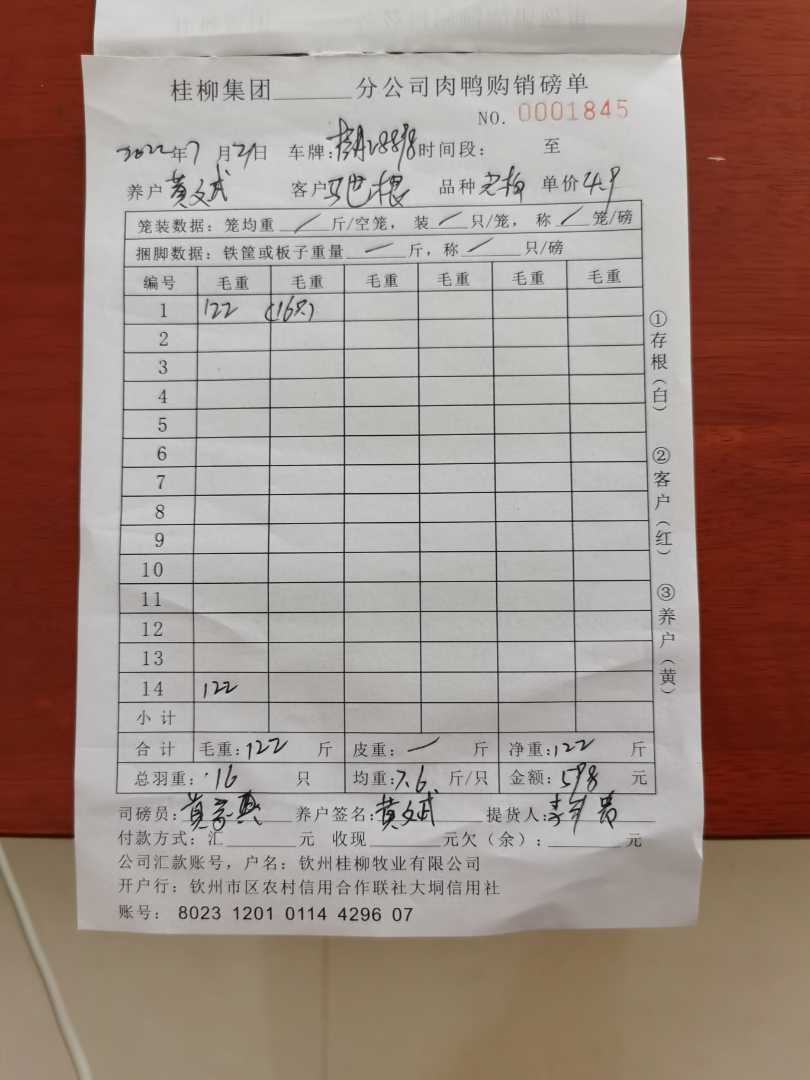 桂柳集团______分公司肉鸭购销磅单
NO. 0001845
2022年7月21日 车牌: 时间段: 至
养户 黄文武 客户 单价 4.9
笼装数据: 笼均重 / 斤/空笼, 装 / 只/笼, 称 / 笼/磅
捆脚数据: 铁筐或板子重量 / 斤, 称 / 只/磅
编号 毛重 毛重 毛重 毛重 毛重 毛重
1 122 (16只)
2
3
4
5
6
7
8
9
10
11
12
13
14 122
小计
合计 毛重: 122 斤 皮重: / 斤 净重: 122 斤
总羽重: 16 只 均重: 7.6 斤/只 金额: 598 元
司磅员: 养户签名: 黄文武 提货人:
付款方式: 汇______元 收现______元欠(余): ______元
公司汇款账号, 户名: 钦州桂柳牧业有限公司
开户行: 钦州市区农村信用合作联社大垌信用社
账号: 8023 1201 0114 4296 07
①存根(白) ②客户(红) ③养户(黄)